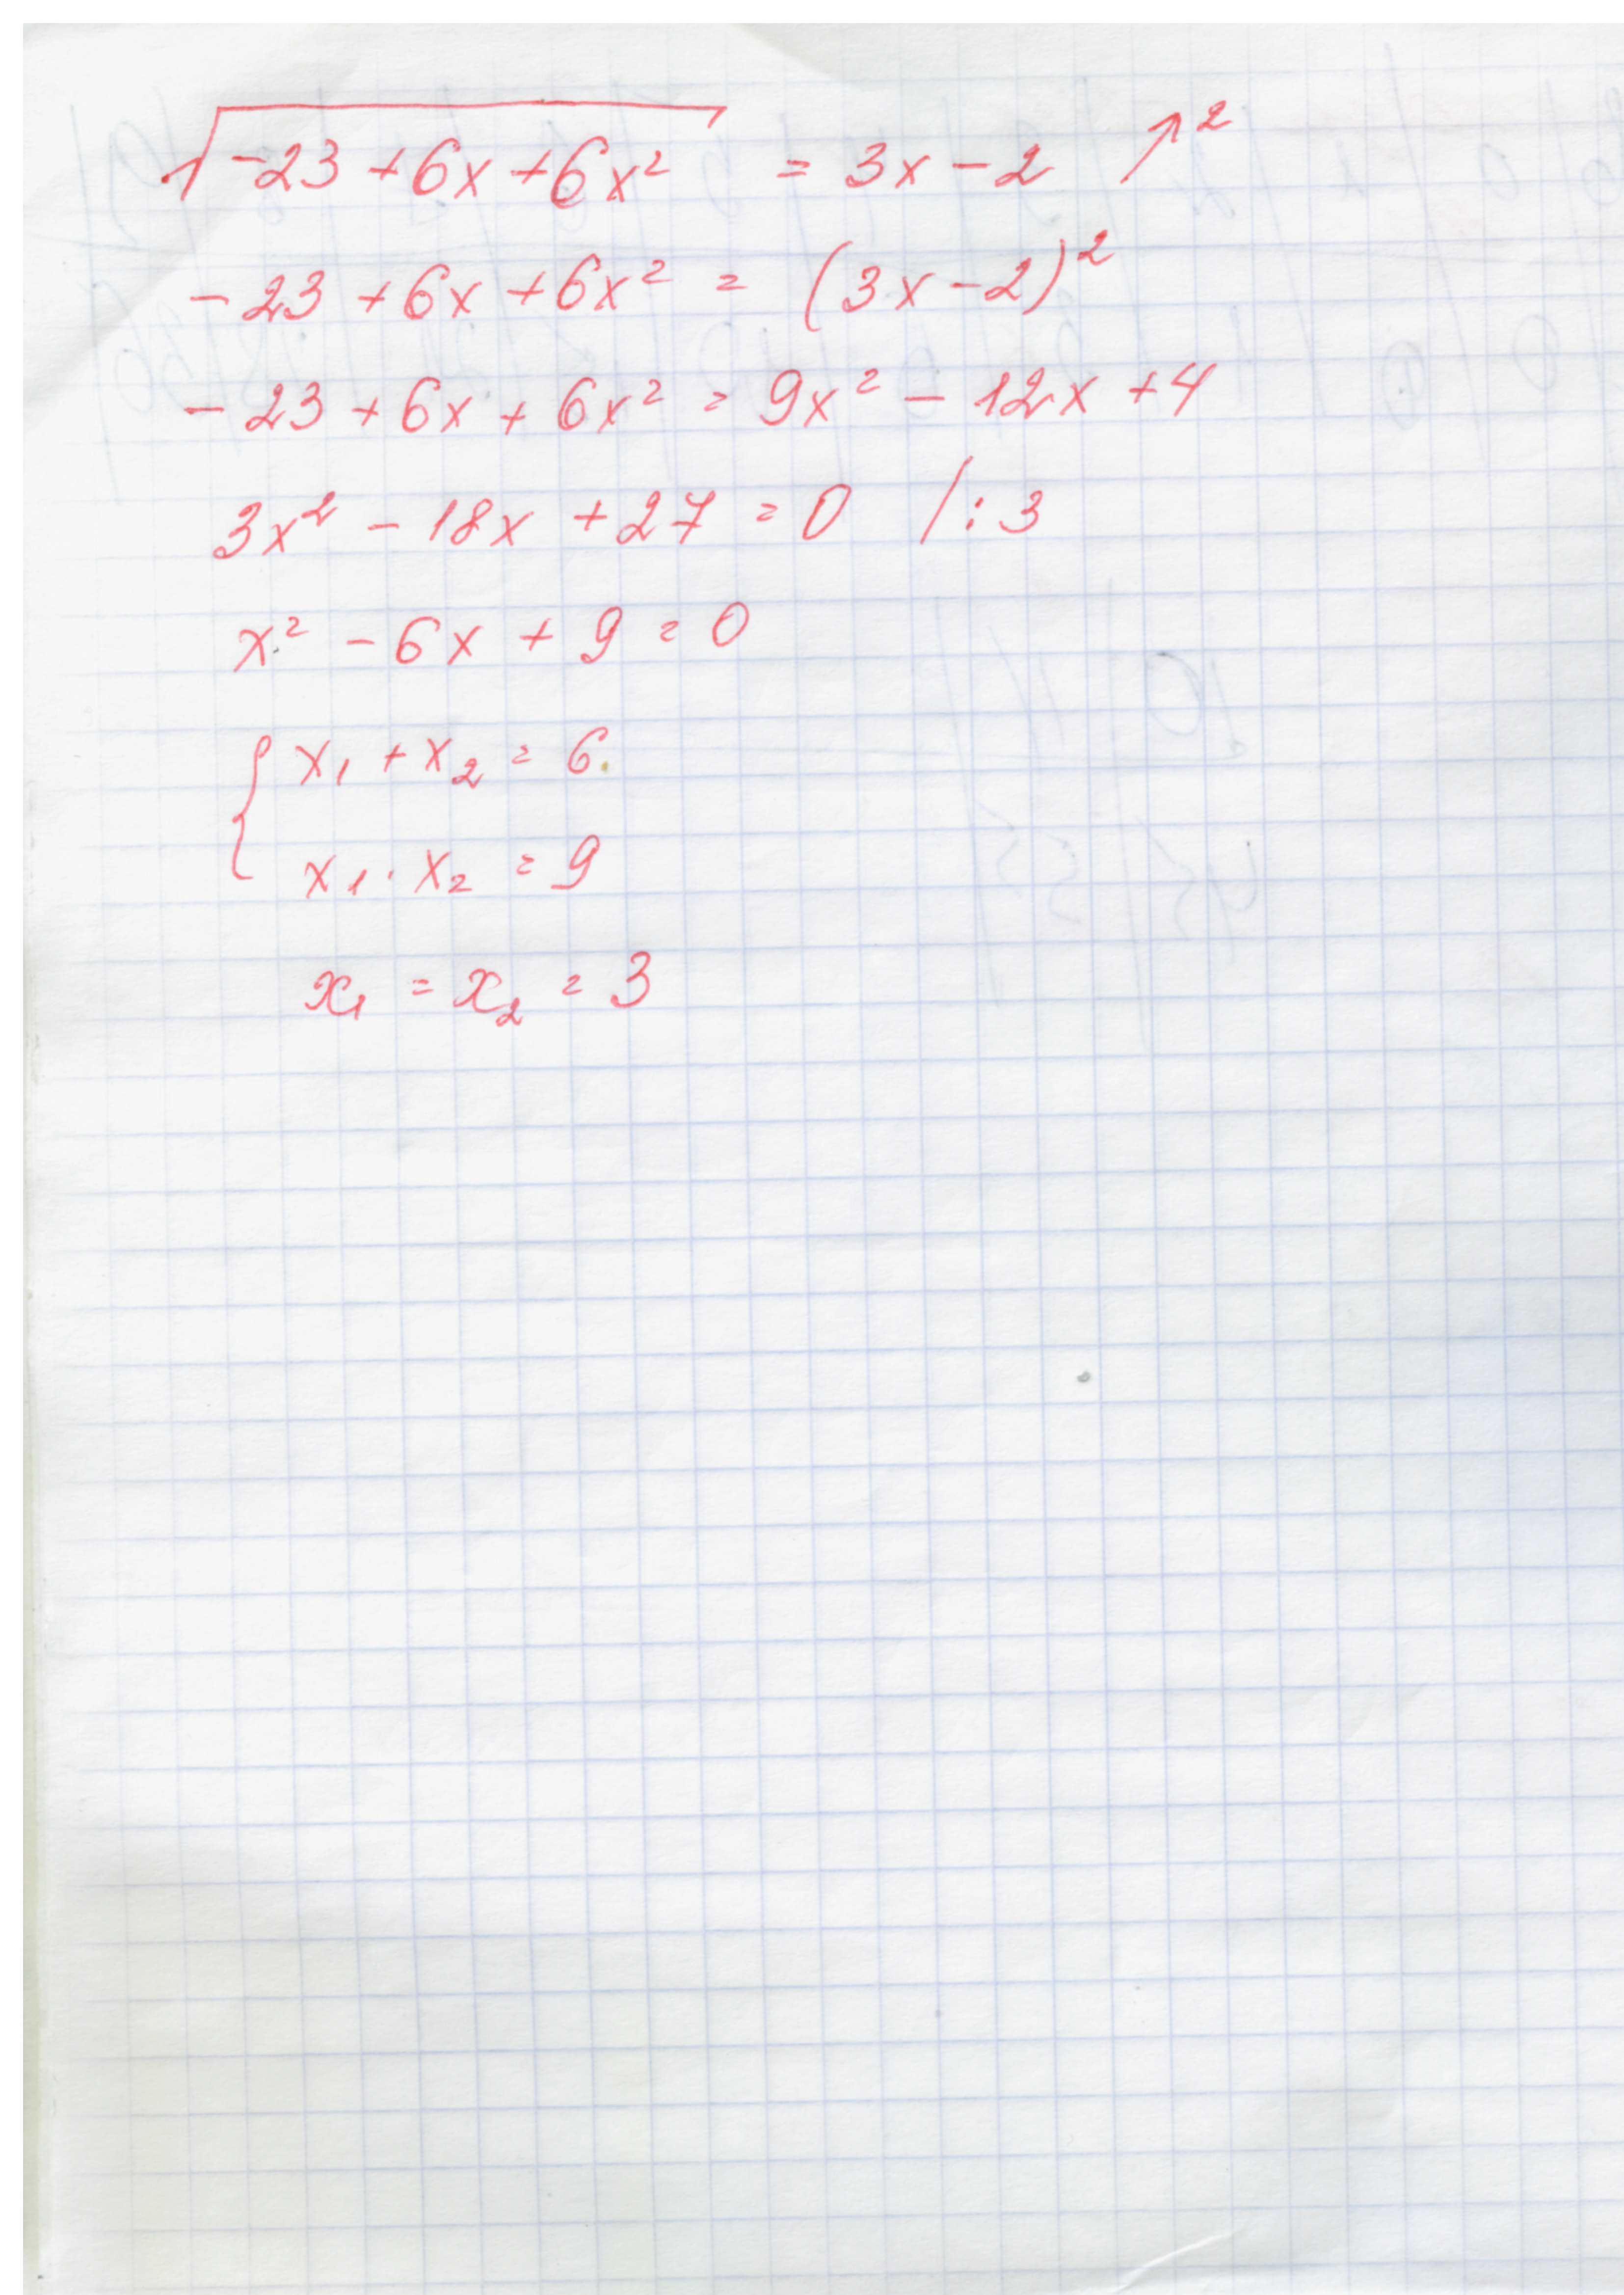 √(-23 + 6x + 6x²) = 3x - 2 ↗²
- 23 + 6x + 6x² = (3x - 2)²
- 23 + 6x + 6x² = 9x² - 12x + 4
3x² - 18x + 27 = 0 /: 3
x² - 6x + 9 = 0
{ x₁ + x₂ = 6
x₁ · x₂ = 9
x₁ = x₂ = 3